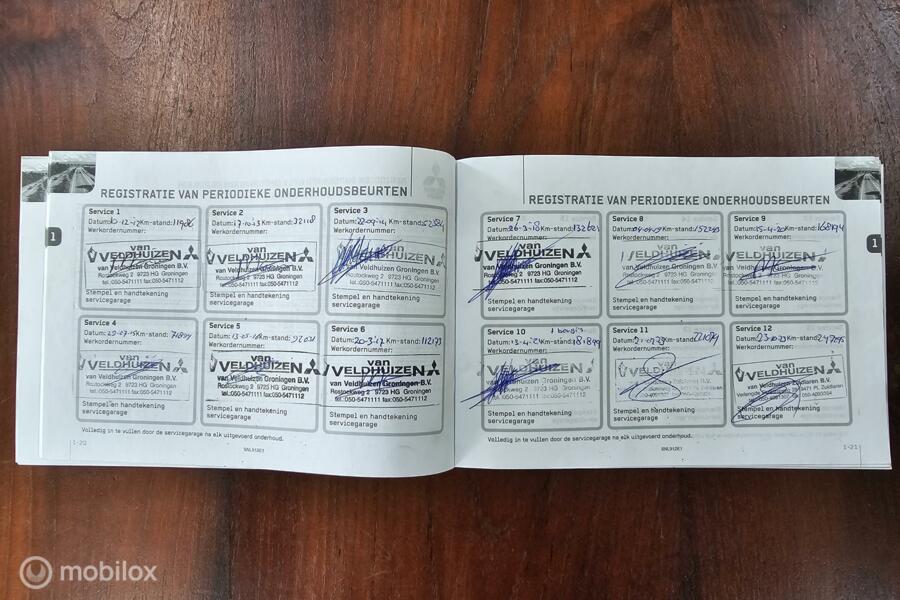 REGISTRATIE VAN PERIODIEKE ONDERHOUDSBEURTEN
1
Service 1
Datum: 10-12-12 Km-stand: 11986
Werkordernummer:
van
VELDHUIZEN
van Veldhuizen Groningen B.V.
Rostockweg 2 9723 HG Groningen
tel. 050-5471111 fax:050-5471112
Stempel en handtekening
servicegarage
Service 2
Datum: 17-10-13 Km-stand: 32118
Werkordernummer:
van
VELDHUIZEN
van Veldhuizen Groningen B.V.
Rostockweg 2 9723 HG Groningen
tel. 050-5471111 fax:050-5471112
Stempel en handtekening
servicegarage
Service 3
Datum: Km-stand: 52584
Werkordernummer:
van
VELDHUIZEN
van Veldhuizen Groningen B.V.
Rostockweg 2 9723 HG Groningen
tel. 050-5471111 fax:050-5471112
Stempel en handtekening
servicegarage
Service 4
Datum: 29-07-15 Km-stand:
Werkordernummer:
van
VELDHUIZEN
van Veldhuizen Groningen B.V.
Rostockweg 2 9723 HG Groningen
tel. 050-5471111 fax:050-5471112
Stempel en handtekening
servicegarage
Service 5
Datum: Km-stand:
Werkordernummer:
van
VELDHUIZEN
van Veldhuizen Groningen B.V.
Rostockweg 2 9723 HG Groningen
tel. 050-5471111 fax:050-5471112
Stempel en handtekening
servicegarage
Service 6
Datum: 20-3-17 Km-stand: 112173
Werkordernummer:
van
VELDHUIZEN
van Veldhuizen Groningen B.V.
Rostockweg 2 9723 HG Groningen
tel. 050-5471111 fax:050-5471112
Stempel en handtekening
servicegarage
Volledig in te vullen door de servicegarage na elk uitgevoerd onderhoud.
1-20
SNL912E1
REGISTRATIE VAN PERIODIEKE ONDERHOUDSBEURTEN
1
Service 7
Datum: 26-3-18 Km-stand: 132621
Werkordernummer:
van
VELDHUIZEN
van Veldhuizen Groningen B.V.
Rostockweg 2 9723 HG Groningen
tel. 050-5471111 fax:050-5471112
Stempel en handtekening
servicegarage
Service 8
Datum: Km-stand:
Werkordernummer:
van
VELDHUIZEN
van Veldhuizen Groningen B.V.
Rostockweg 2 9723 HG Groningen
tel. 050-5471111 fax:050-5471112
Stempel en handtekening
servicegarage
Service 9
Datum: 15-4-20 Km-stand:
Werkordernummer:
van
VELDHUIZEN
van Veldhuizen Groningen B.V.
Rostockweg 2 9723 HG Groningen
tel. 050-5471111 fax:050-5471112
Stempel en handtekening
servicegarage
Service 10
Datum: 13-4-21 Km-stand:
Werkordernummer:
van
VELDHUIZEN
van Veldhuizen Groningen B.V.
Rostockweg 2 9723 HG Groningen
tel. 050-5471111 fax:050-5471112
Stempel en handtekening
servicegarage
Service 11
Datum: Km-stand:
Werkordernummer:
van
VELDHUIZEN
Stempel en handtekening
servicegarage
Service 12
Datum: 23-10-23 Km-stand:
Werkordernummer:
van
VELDHUIZEN
van Veldhuizen Zuidlaren B.V.
Stempel en handtekening
servicegarage
Volledig in te vullen door de servicegarage na elk uitgevoerd onderhoud.
SNL912E1
1-21
mobilox